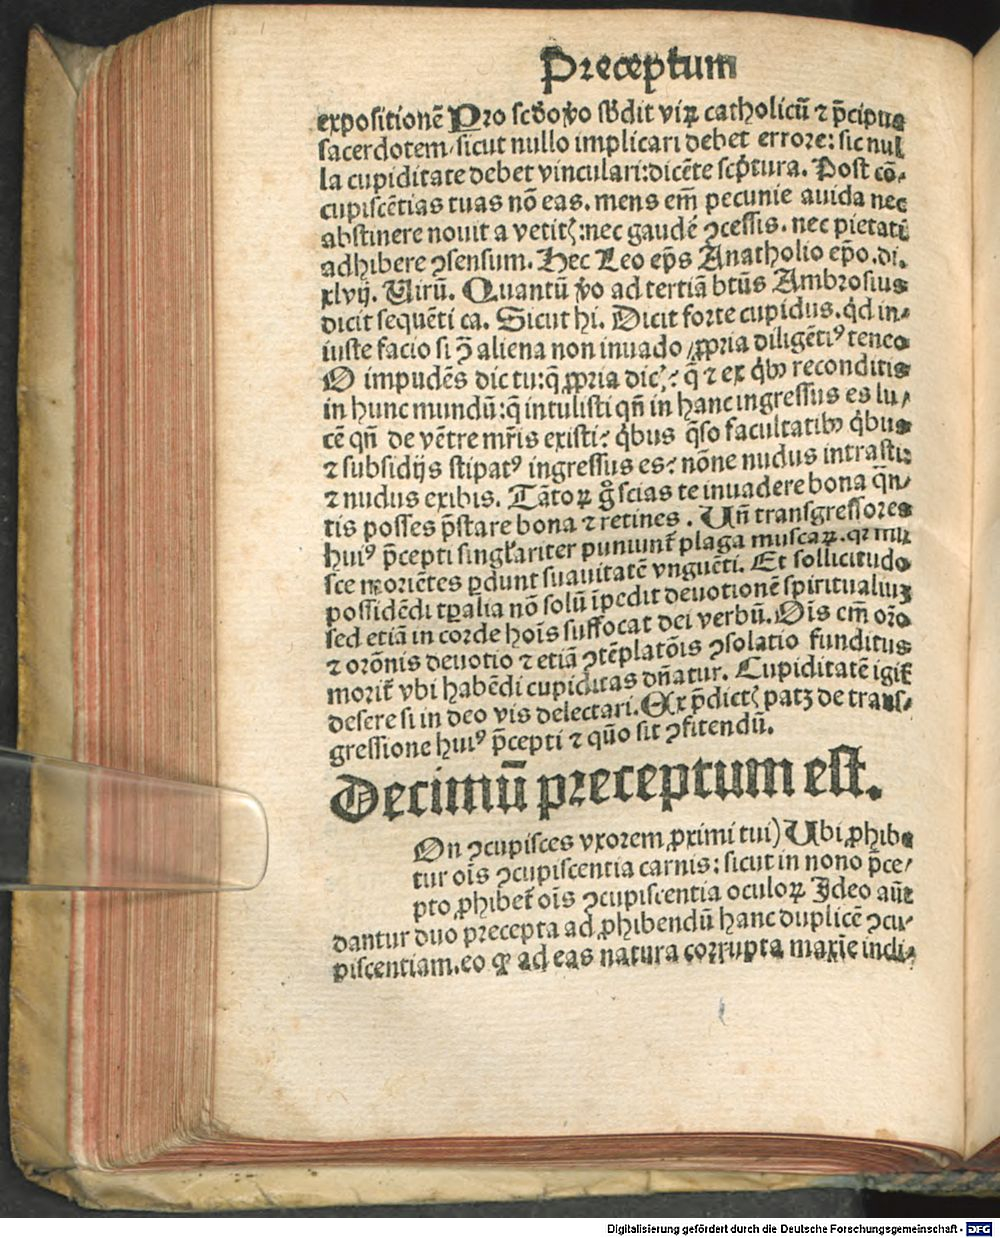 Preceptum
expositionē Pro scḋo v̓o sb̓dit virꝝ catholicū ⁊ p̄cipue
sacerdotem/sicut nullo implicari debet errore: sic nul
la cupiditate debet vinculari: dicēte scp̄tura. Post cō⸗
cupiscētias tuas nō eas. mens em̄ pecunie auida nec
abstinere nouit a vetitꝭ: nec gaudē ꝯcessis. nec pietatū
adhibere ꝯsensum. Hec Leo ep̄s Anatholio ep̄o. di.
xlvij. Uirū. Quantū v̓o ad tertiā btūs Ambrosius
dicit sequēti ca. Sicut hi. Dicit forte cupidus. qd̓ in⸗
iuste facio si ꝫ aliena non inuado/ꝓpria diligētiꝰ teneo
O impudēs dictu: q̄ ꝓpria dicꝭ? q̄ ⁊ ex qͥbꝰ reconditis
in hunc mundū: q̄ intulisti qn̄ in hanc ingressus es lu⸗
cē qn̄ de vētre mr̄is existi? qͥbus q̄so facultatibꝰ qͥbus
⁊ subsidijs stipatꝰ ingressus es? nōne nudus intrasti:
⁊ nudus exibis. Tātoꝝ gͦ scias te inuadere bona q̄n⸗
tis posses p̄stare bona ⁊ retines. Un̄ transgressores
huiꝰ p̄cepti singlʼariter puniunt̄ plaga muscaꝝ. qꝛ mu
sce moriētes ꝑdunt suauitatē vnguēti. Et sollicitudo
possidēdi tꝑalia nō solū īpedit deuotionē spiritualiuꝫ
sed etiā in corde hoīs suffocat dei verbū. Oīs em̄ oꝛo
⁊ oꝛōnis deuotio ⁊ etiā ꝯtēplatōis ꝯsolatio funditus
morit̄ vbi habēdi cupiditas dn̄atur. Cupiditatē igit̄
desere si in deo vis delectari. Ex p̄dictꝭ patꝫ de trans⸗
gressione huiꝰ p̄cepti ⁊ quō sit ꝯfitendū.
Decimū preceptum est.
On ꝯcupisces vxorem ꝓximi tui) Ubi ꝓhibe
tur oīs ꝯcupiscentia carnis: sicut in nono p̄ce⸗
pto ꝓhibet̄ oīs ꝯcupiscentia oculoꝝ Ideo aūt
dantur duo precepta ad ꝓhibendū hanc duplicē ꝯcu⸗
piscentiam. eo ꝙ ad eas natura corrupta maxīe indi⸗
Digitalisierung gefördert durch die Deutsche Forschungsgemeinschaft - DFG